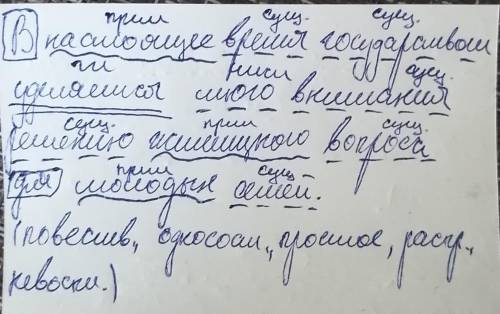 прил сущ. сущ.
В настоящее время государством
гл нис сущ.
уделяется много внимания
сущ. прил сущ.
решению жилищного вопроса
прил сущ
для молодых семей.
(повеств., односост., простое, распр.,
невоскл.)